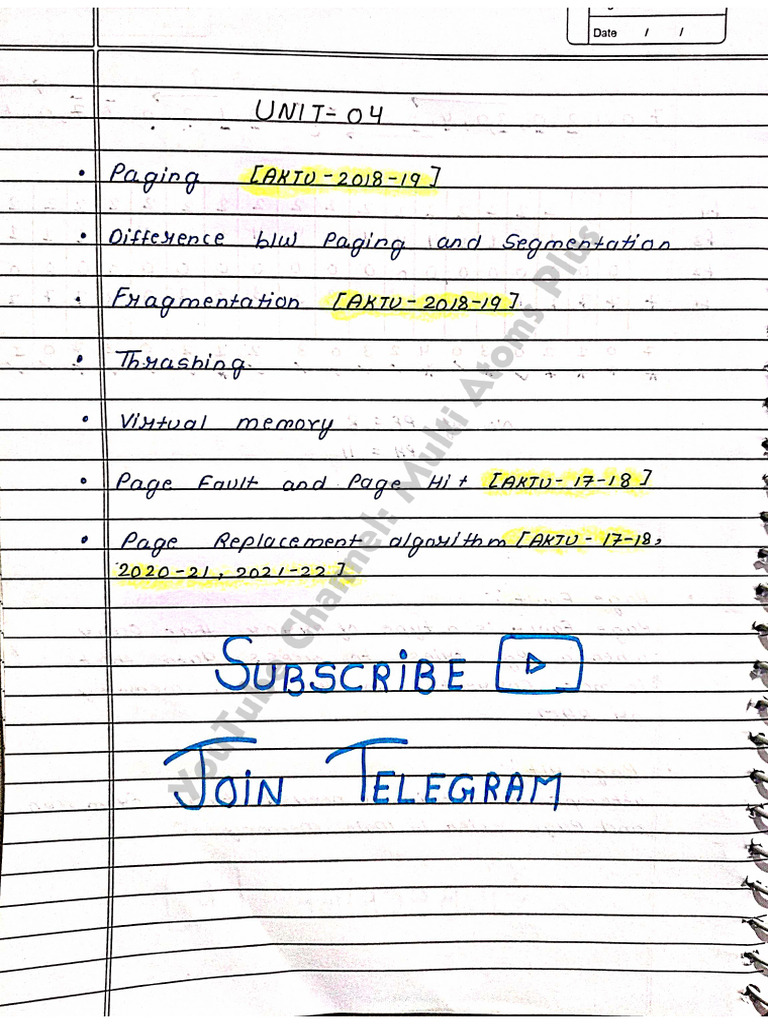 Date / /
UNIT-04
• Paging [AKTU-2018-19]
• Difference b/w Paging and Segmentation
• Fragmentation [AKTU-2018-19]
• Thrashing.
• Virtual memory
• Page Fault and Page Hit [AKTU-17-18]
• Page Replacement algorithm [AKTU-17-18,
2020-21, 2021-22]
SUBSCRIBE
JOIN TELEGRAM
YouTube Channel: Multi Atoms Plus